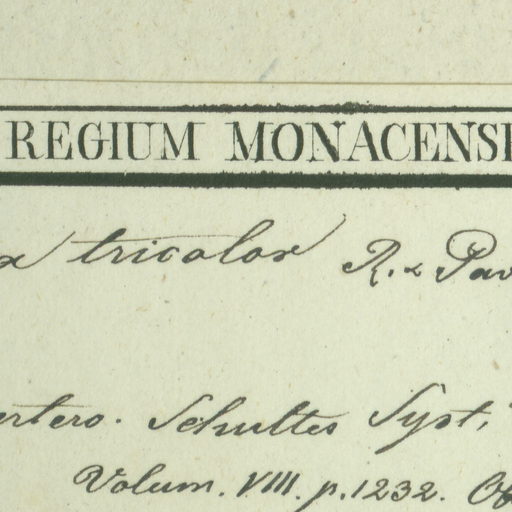 REGIUM MONACENSE
a tricolor R. & Pav
ertero. Schultes Syst.
Volum. VIII. p. 1232.